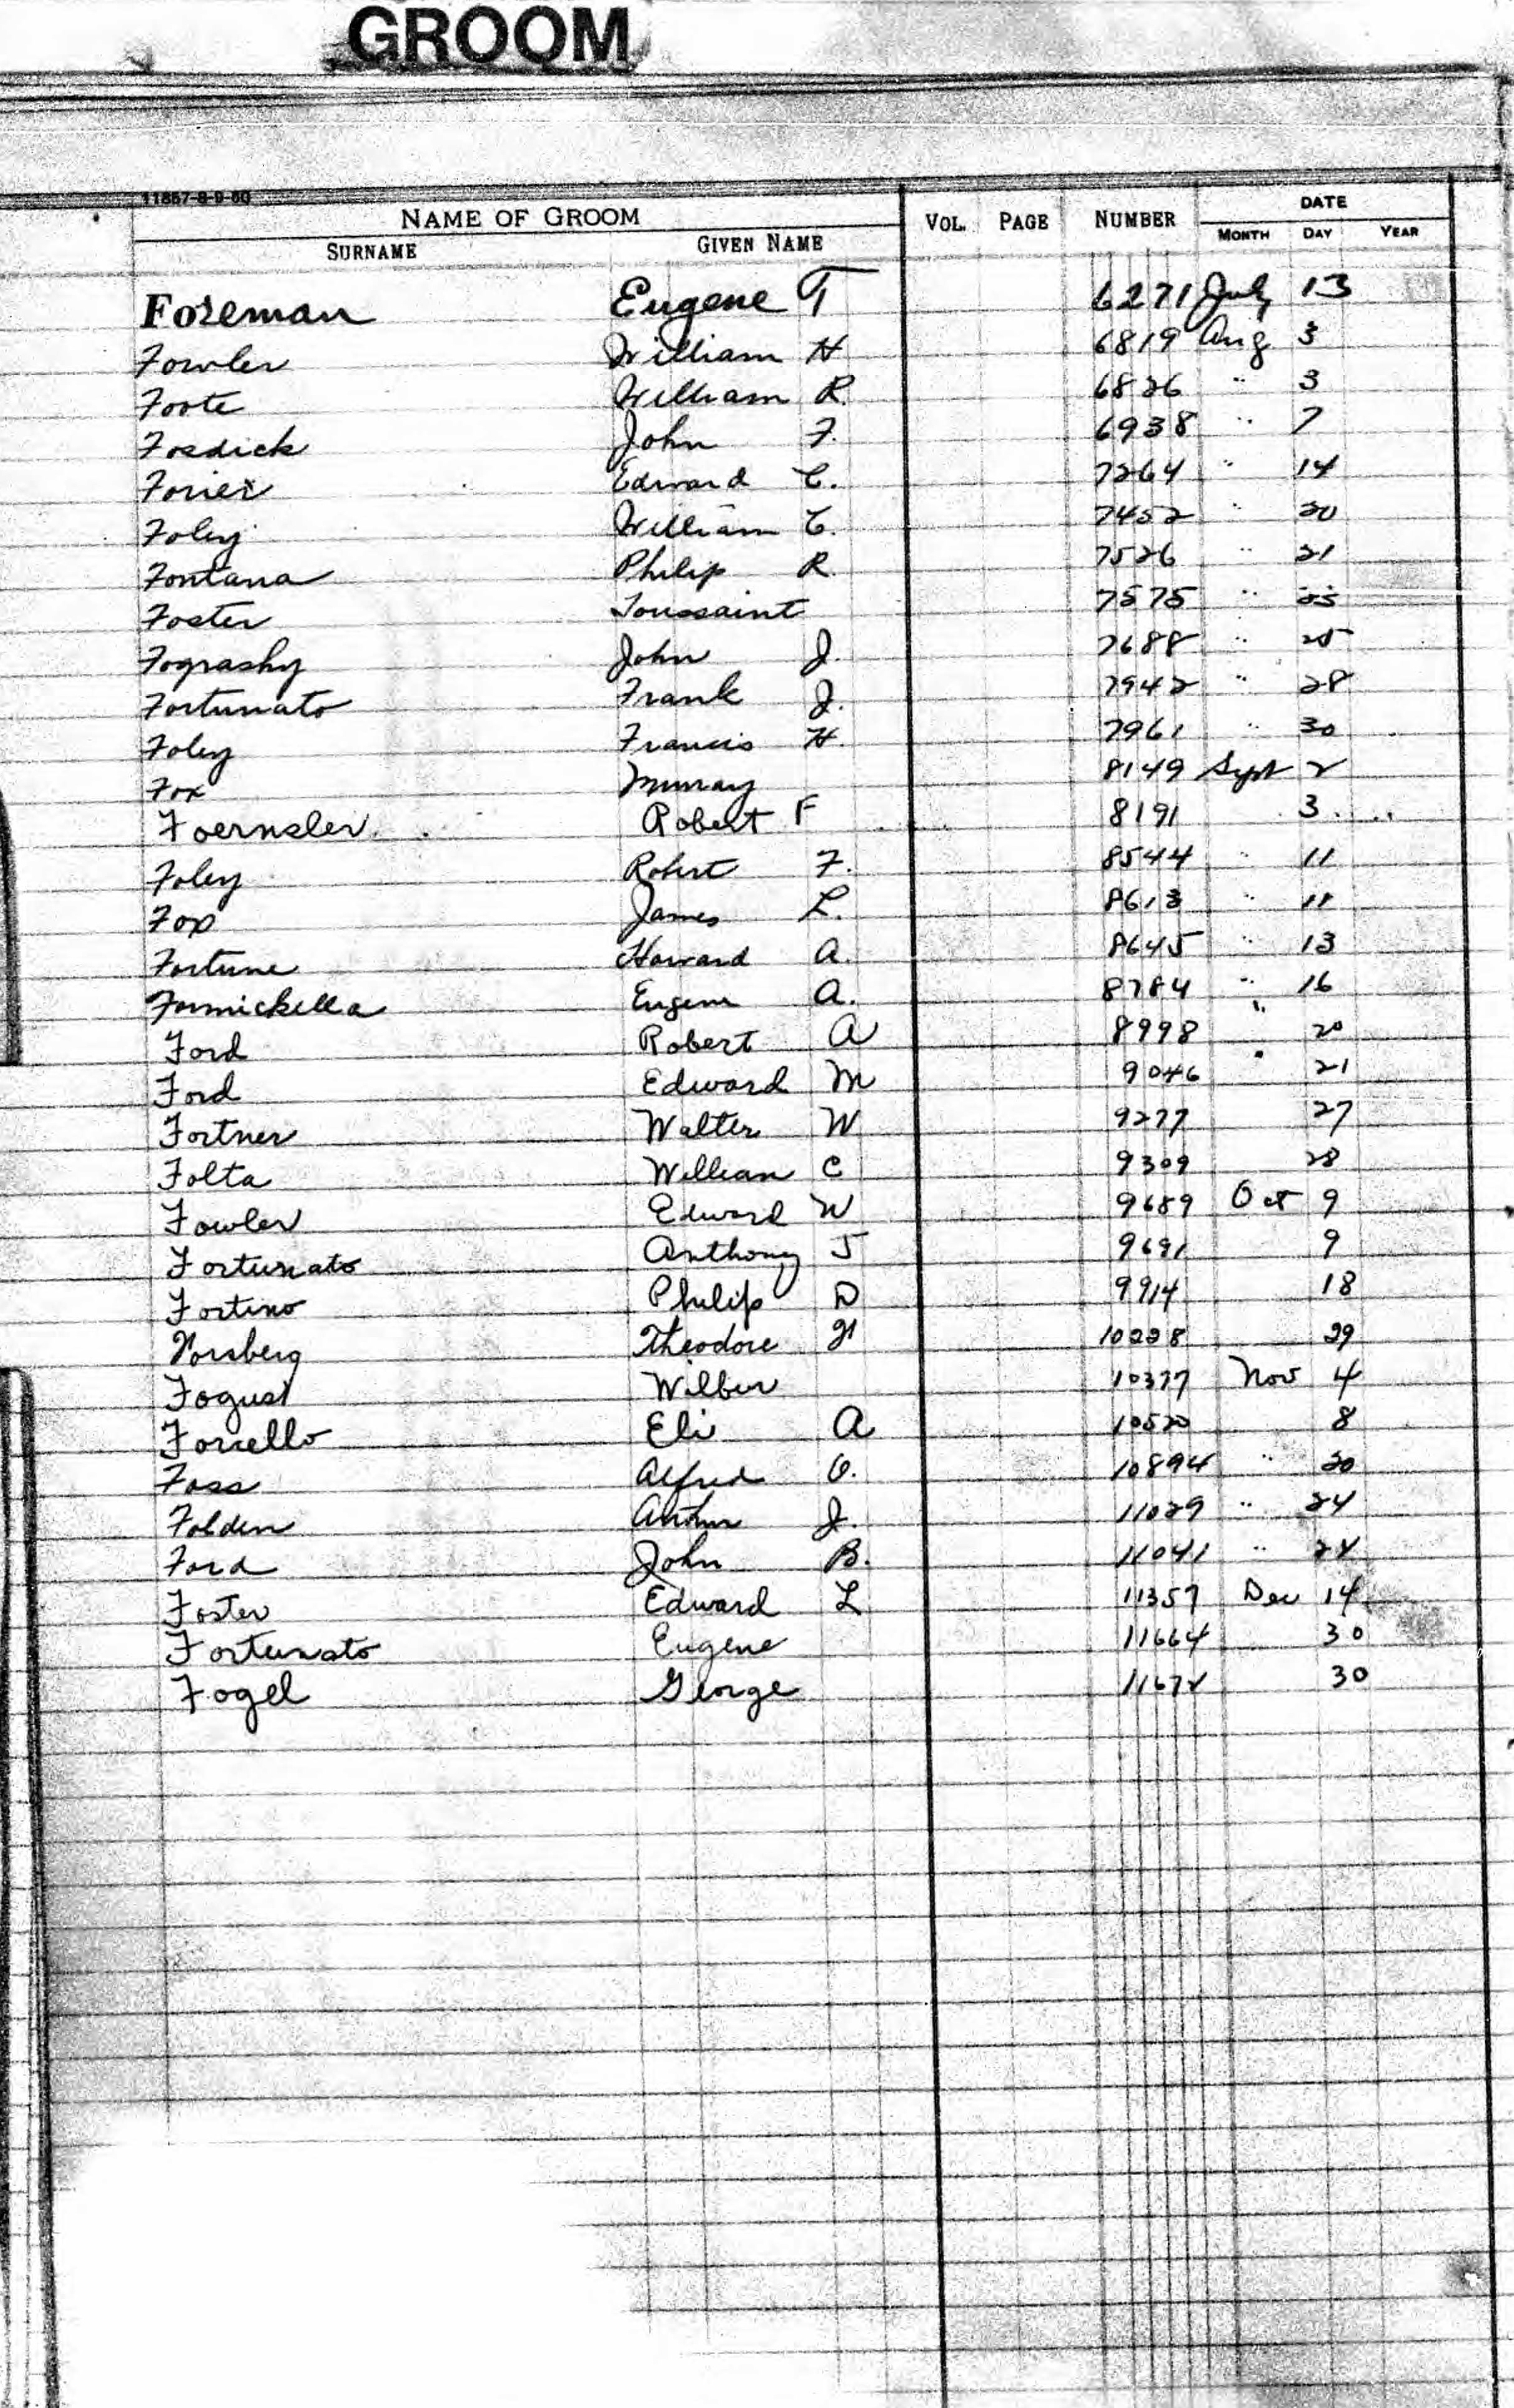 GROOM
11857-8-9-60
NAME OF GROOM VOL. PAGE NUMBER DATE
SURNAME GIVEN NAME MONTH DAY YEAR
Foreman Eugene T 6271 July 13
Fowler William H 6819 Aug 3
Foote William R. 6826 " 3
Fosdick John F. 6938 " 7
Edward C. 7264 " 14
Foley William C. 7452 " 20
Fontana Philip R. 7526 " 21
Foster Toussaint 7575 "
Fograshy John J. 7688 " 25
Fortunato Frank J. 7942 " 28
Foley Francis H. 7961 " 30
Fox Murray 8149 Sept 2
Foernsler Robert F 8191 3
Foley Robert F. 8544 " 11
Fox James L. 8613 " 11
Fortune Howard A. 8645 " 13
Formichella Eugene A. 8784 " 16
Ford Robert A 8998 " 20
Ford Edward M 9046 " 21
Fortner Walter W 9277 27
Folta William C 9309 28
Fowler Edward W 9689 Oct 9
Fortunato Anthony J 9691 9
Fortino Philip D 9914 18
Forsberg Theodore H 10228 29
Fogust Wilbur 10377 Nov 4
Forello Eli A 10520 8
Foss Alfred O. 10894 " 20
Folden Arthur J. 11029 " 24
Ford John B. 11041 " 24
Foster Edward L 11357 Dec 14
Fortunato Eugene 11664 30
Fogel George 11672 30